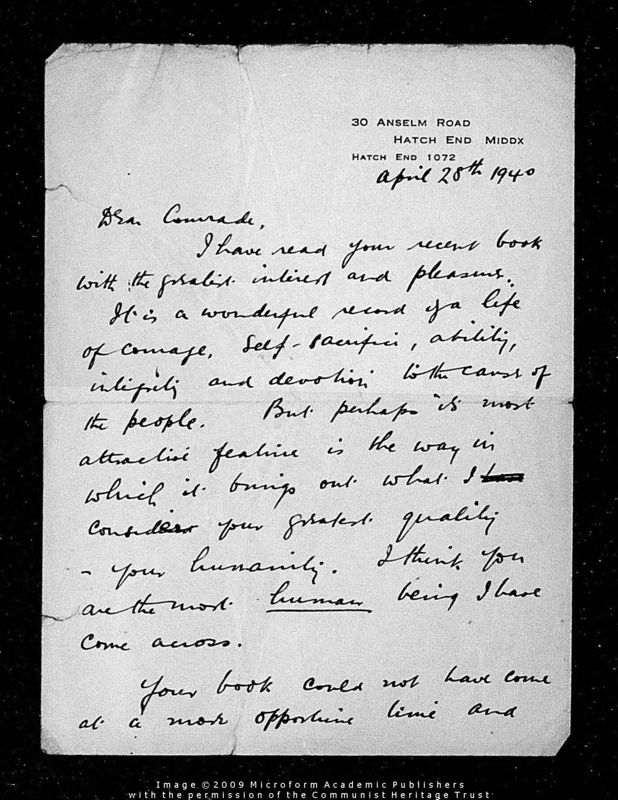 30 ANSELM ROAD
HATCH END MIDDX
HATCH END 1072
April 28th 1940
Dear Comrade,
I have read your recent book
with the greatest interest and pleasure.
It is a wonderful record of a life
of courage, self-sacrifice, ability,
integrity and devotion to the cause of
the people. But perhaps its most
attractive feature is the way in
which it brings out what I
consider your greatest quality
- your humanity. I think you
are the most human being I have
come across.
Your book could not have come
at a more opportune time and
Image ©2009 Microform Academic Publishers
with the permission of the Communist Heritage Trust